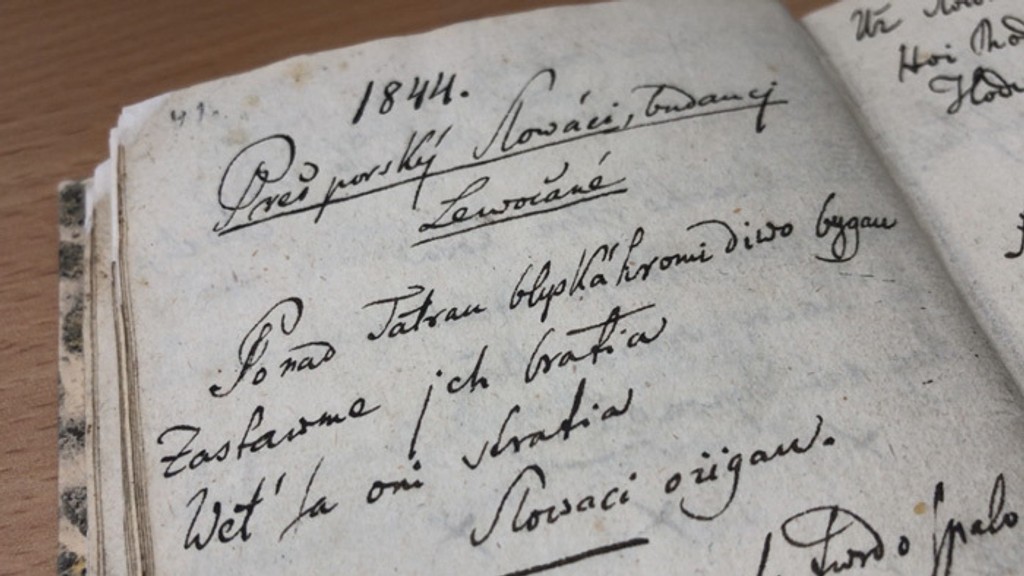 41.
1844.
Prešporský Slowáci, budaucj
Lewočané
Ponad Tatrau blyská hromi diwo bygau
Zastawme jch bratia
Wet' sa oni stratia
Slowaci ožigau.
Twrdo spalo
Už
Hoi